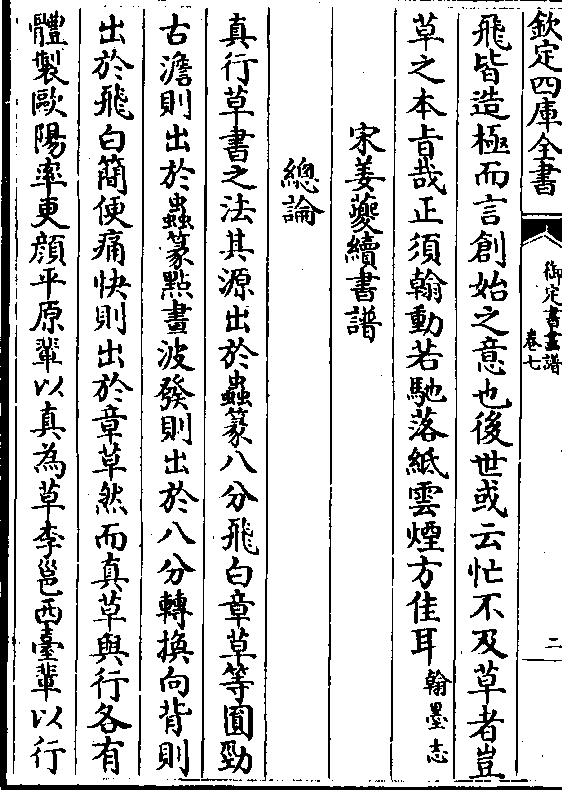 欽定四庫全書
御定書畫譜
卷七
二
飛皆造極而言創始之意也後世或云忙不及草者豈
草之本旨哉正須翰動若馳落紙雲煙方佳耳翰墨志
宋姜夔續書譜
總論
真行草書之法其源出於蟲篆八分飛白章草等圓勁
古澹則出於蟲篆點畫波發則出於八分轉換向背則
出於飛白簡便痛快則出於章草然而真草與行各有
體製歐陽率更顔平原輩以真為草李邕西臺輩以行